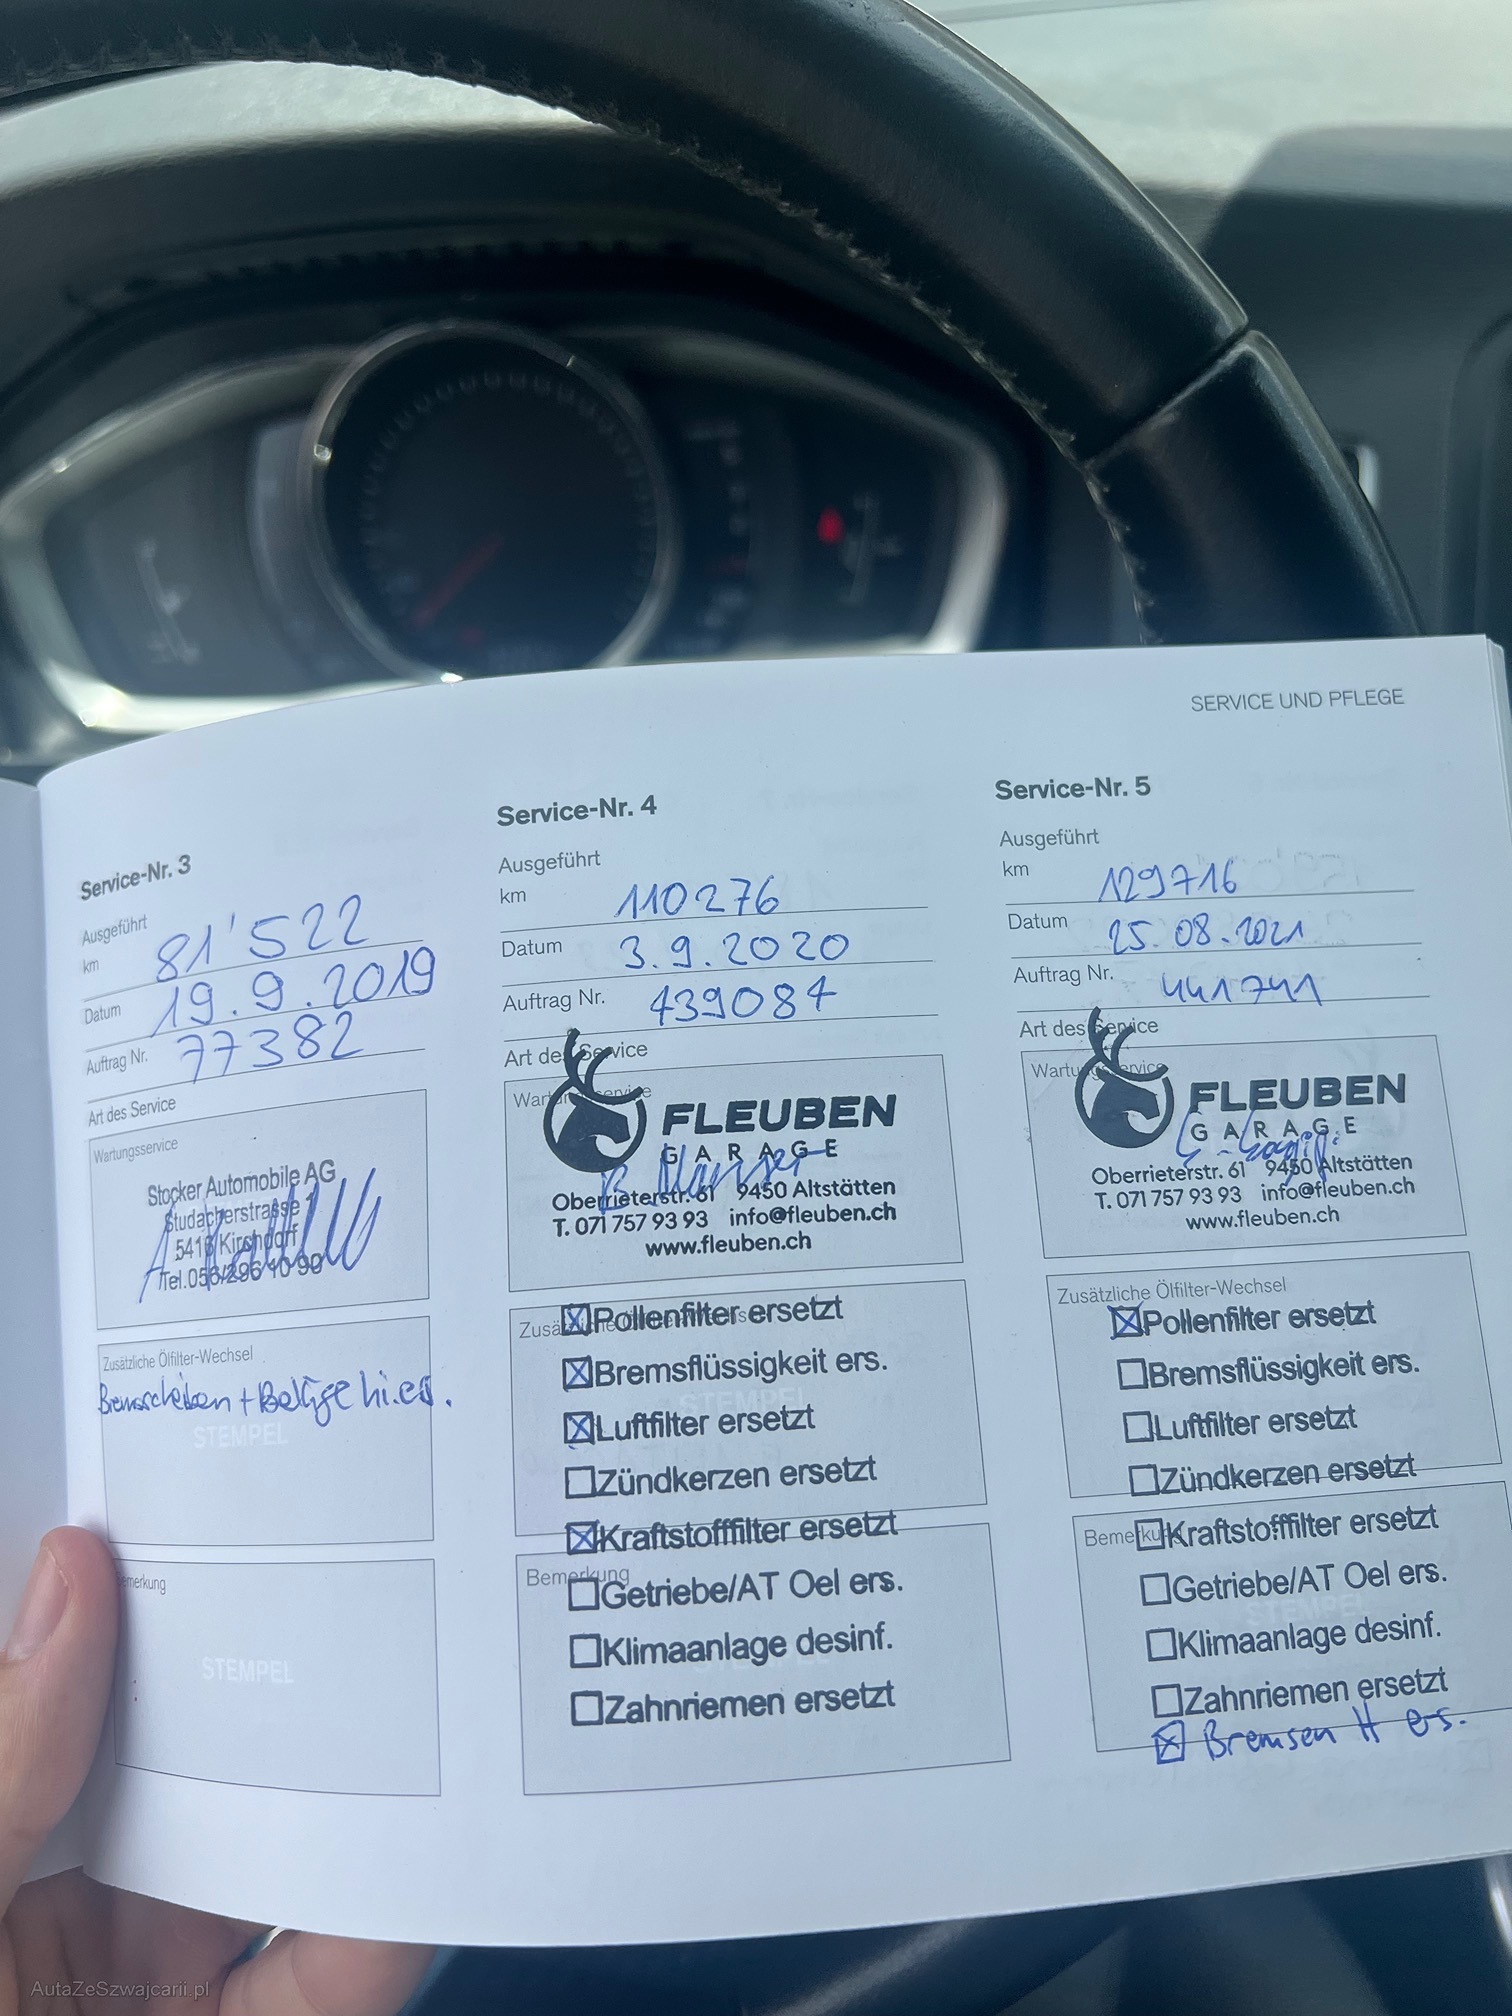 SERVICE UND PFLEGE
Service-Nr. 3
Ausgeführt
km 81'522
Datum 19.9.2019
Auftrag Nr. 77382
Art des Service
Wartungsservice
Stocker Automobile AG
Studacherstrasse 1
5416 Kirchdorf
Tel.056/296 10 90
Zusätzliche Ölfilter-Wechsel
Bremsscheiben + Beläge hi. ers.
STEMPEL
Bemerkung
STEMPEL
Service-Nr. 4
Ausgeführt
km 110276
Datum 3.9.2020
Auftrag Nr. 439084
Art des Service
Wartungsservice
FLEUBEN
GARAGE
Oberrieterstr. 61 9450 Altstätten
T. 071 757 93 93 info@fleuben.ch
www.fleuben.ch
☒Pollenfilter ersetzt
☒Bremsflüssigkeit ers.
STEMPEL
☒Luftfilter ersetzt
☐Zündkerzen ersetzt
☒Kraftstofffilter ersetzt
Bemerkung
☐Getriebe/AT Oel ers.
☐Klimaanlage desinf.
☐Zahnriemen ersetzt
Service-Nr. 5
Ausgeführt
km 129716
Datum 25.08.2021
Auftrag Nr. 441741
Art des Service
Wartungsservice
FLEUBEN
GARAGE
Oberrieterstr. 61 9450 Altstätten
T. 071 757 93 93 info@fleuben.ch
www.fleuben.ch
Zusätzliche Ölfilter-Wechsel
☒Pollenfilter ersetzt
☐Bremsflüssigkeit ers.
☐Luftfilter ersetzt
☐Zündkerzen ersetzt
Bemerkung
☐Kraftstofffilter ersetzt
☐Getriebe/AT Oel ers.
STEMPEL
☐Klimaanlage desinf.
☐Zahnriemen ersetzt
☒ Bremsen H ers.
AutaZeSzwajcarii.pl